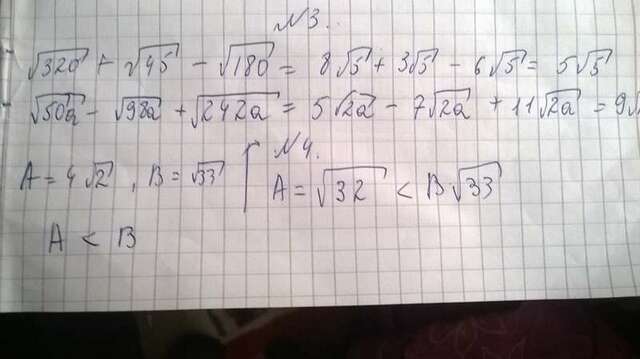 №3.
√320 + √45 - √180 = 8√5 + 3√5 - 6√5 = 5√5
√50a - √98a + √242a = 5√2a - 7√2a + 11√2a = 9√
№4.
A = 4√2, B = √33
A = √32 < B √33
A < B